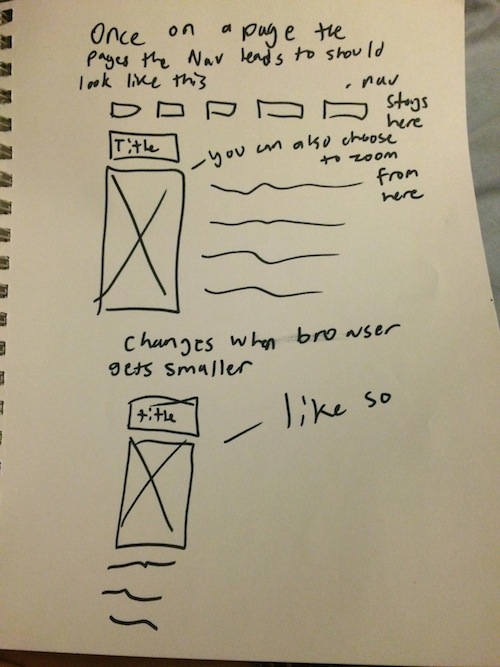 Once on a page the
pages the Nav leads to should
look like this
. nav
stays
here
Title
you can also choose
to zoom
from
here
Changes when browser
gets smaller
title
like so